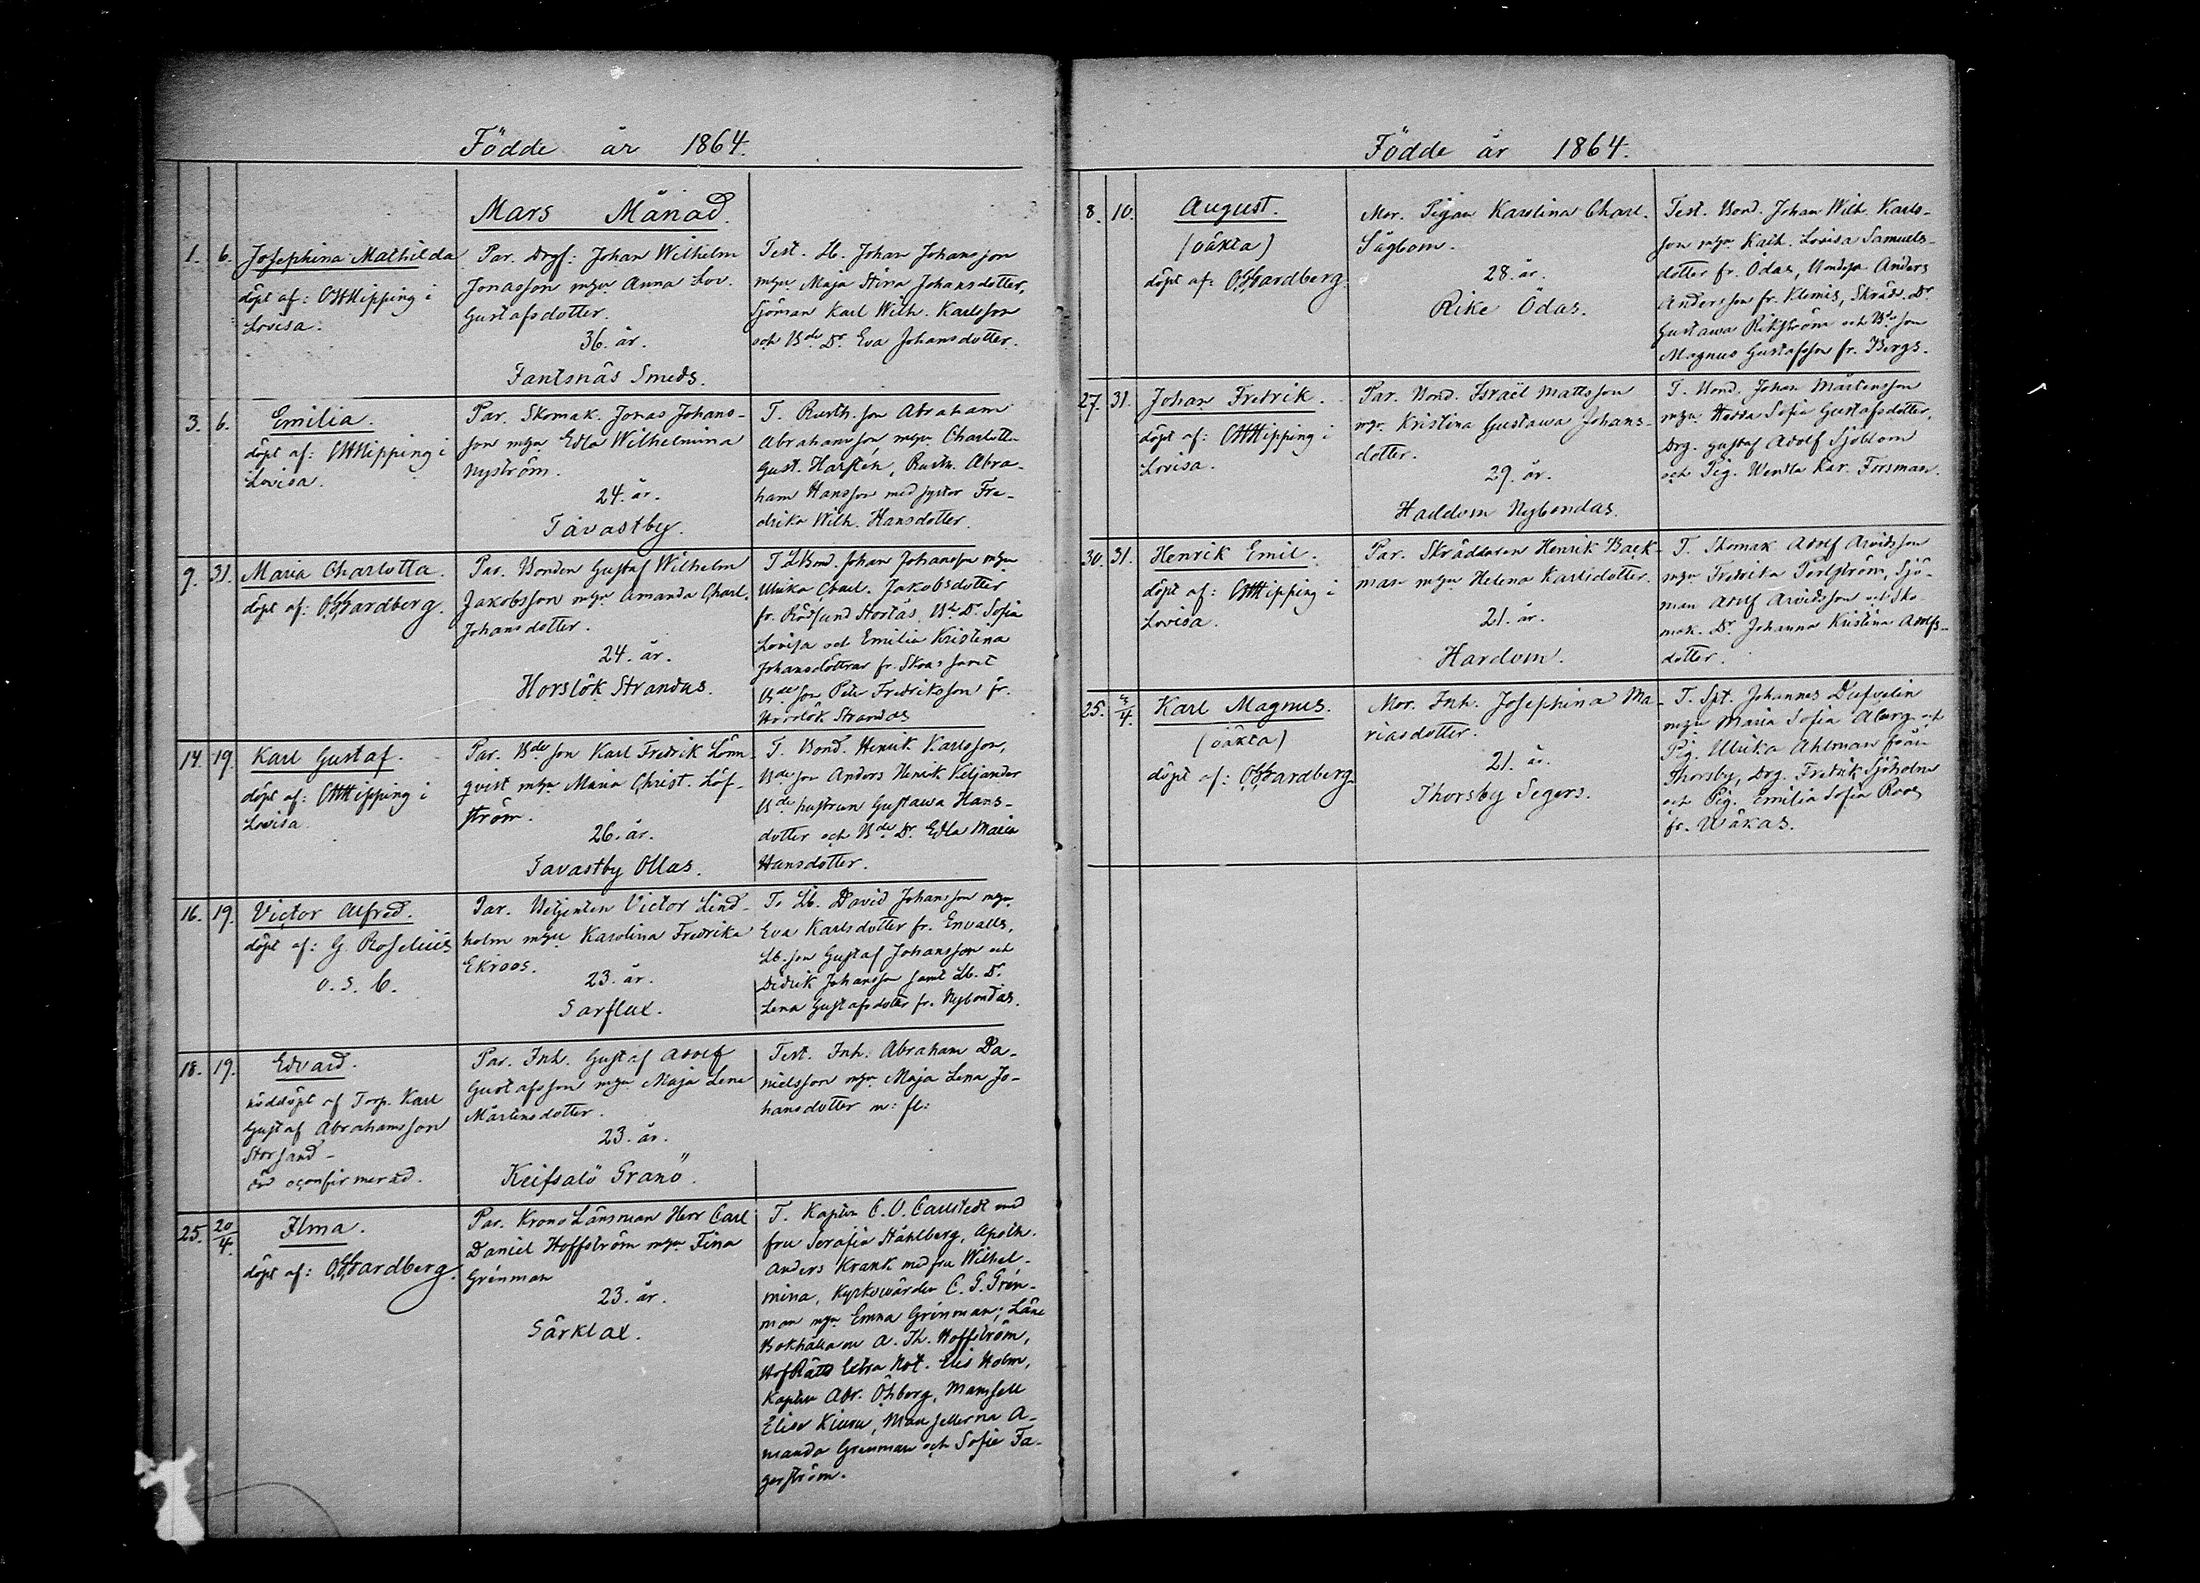 Födde år 1864.
Mars Månad.
1. 6. Josephina Mathilda
döpt af: OHHipping i
Lovisa.
Par. Drgf: Johan Wilhelm
Jonasson mgn Anna Lov.
Gustafsdotter.
36. år.
Fantsnäs Smeds.
Test. Lb. Johan Johansson
mgn Maja Stina Johansdotter,
Sjöman Karl Wilh. Karlsson
och Bde Dr Eva Johansdotter.
3. 6. Emilia.
döpt af: OHHipping i
Lovisa.
Par. Skomak. Jonas Johans-
son mgn Edla Wilhelmina
Nyström.
24. år.
Tavastby.
T. Rusth. son Abraham
Abrahamsson mgn Charlott.
Gust. Harstén, Rusth. Abra-
ham Hansson med syster Fre-
drika Wilh. Hansdotter.
9. 31. Maria Charlotta.
döpt af: Hardberg.
Par. Bonden Gustaf Wilhelm
Jakobsson mgn Amanda Charl.
Johansdotter.
24. år.
Horslök Strandas.
Johan Johansson mgn
Ulrika Charl. Jakobsdotter
fr. Rödsund Bde Dr Sofia
Lovisa och Emilia Kristina
Johansdöttrar fr. Skoas samt
Bde son Petr Fredriksson fr.
Horslök Strandas
14. 19. Karl Gustaf.
döpt af: OHHipping i
Lovisa
Par. Bde son Karl Fredrik Lönn-
qvist mgn Maria Christ. Löf-
ström.
26. år.
Tavastby Ollas.
T. Bond. Henrik Karlsson,
Bde son Anders Henrik Veljander
Bde hustrun Gustawa Hans-
dotter och Bde Dr. Edla Maria
Hansdotter.
16. 19. Victor Alfred.
döpt af: G. Roselius
v. s. b.
Par. Victor Lind-
holm mgn Karolina Fredrika
Ekroos.
23. år.
Sarflax.
T. Lb. David Johansson mgn
Eva Karlsdotter fr. Envalls,
Lb. son Gustaf Johansson och
Didrik Johansson samt Lb. Dr
Lena Gustafsdotter fr. Nybondas.
18. 19. Edvard.
nöddöpt af Torp. Karl
Gustaf Abrahamsson
Storsand -
oconfirmerad.
Par. Inh. Gustaf Adolf
Gustafsson mgn Maja Lena
Mårtensdotter.
23. år.
Keifsalö Granö.
Test. Inh. Abraham Da-
nielsson mgn Maja Lena Jo-
hansdotter m: fl:
25. 20/4. Ilma.
döpt af: Hardberg.
Par. Krono Länsman Herr Carl
Daniel Hoffström mgn Fina
Grénman
23. år.
Särklax.
T. Kapten C. O. Carlstedt med
fru Serafia Ståhlberg, Apoth.
Anders Krank med fru Wilhel-
mina, Kyrkowärden C. G. Grén-
man mgn Emma Grénman; Läns
Bokhållaren A. Th. Hoffström,
HofRätts Extra Not. Elis Holm,
Kapten Abr. Öhberg, Mamsell
Elise, Mamsellerna A-
manda Grenman och Sofie Fa-
gerström.
Födde år 1864.
8. 10. August.
(oäkta)
döpt af: Hardberg.
Mor. Pigan Karolina Charl.
Sågbom.
28. år.
Rike Ödas.
Test. Bond. Johan Wilh. Karls-
son mgn Kath. Lovisa Samuels-
dotter fr. Ödas, Anders
Andersson fr. Klemis, Skräd. Dr
Gustawa Rikström och Bde son
Magnus Gustafsson fr. Bergs.
27. 31. Johan Fredrik.
döpt af: OHHipping i
Lovisa.
Par. Bond. Israël Mattsson
mgn Kristina Gustawa Johans-
dotter.
29. år.
Haddom Nybondas.
T. Bond. Johan Mårtensson
mgn Hedda Sofia Gustafsdotter,
Drg. Gustaf Adolf Sjöblom
och Pig. Wendla Kar. Forsman.
30. 31. Henrik Emil.
döpt af: OHHipping i
Lovisa.
Par. Skräddaren Henrik Back-
man mgn Helena Karlsdotter.
21. år.
Hardom.
T. Skomak. Adolf Arvidsson
mgn Fredrika, Sjö-
man Adolf Arvidsson och Sko-
mak. Dr Johanna Kristina Adolfs-
dotter.
25. 3/4. Karl Magnus.
(oäkta)
döpt af: Hardberg.
Mor. Inh. Josephina Ma-
riasdotter.
21. år.
Thorsby Segers.
T. Spt. Johannes Dufvelin
mgn Maria Sofia Åberg och
Pig. Ulrika Ahlman från
Thorsby, Drg. Fredrik Sjöholm
och Pig. Emilia Sofia Roos
fr. Wåkas.